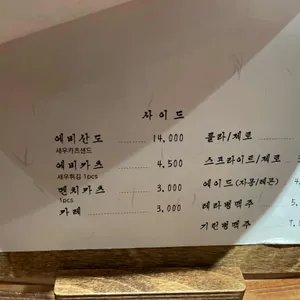 사이드
에비산도 14,000
새우카츠샌드
에비카츠 4,500
새우튀김 1pcs
멘치카츠 3,000
1pcs
카레 3,000
콜라/제로
스프라이트/제로
에이드(자몽/레몬) 4
테라병맥주 5.
기린병맥주 7.